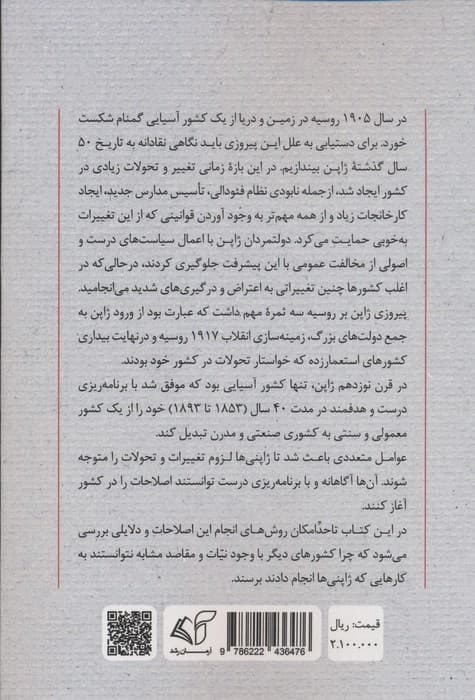 در سال ۱۹۰۵ روسیه در زمین و دریا از یک کشور آسیایی گمنام شکست
خورد. برای دستیابی به علل این پیروزی باید نگاهی نقادانه به تاریخ ۵۰
سال گذشتهٔ ژاپن بیندازیم. در این بازهٔ زمانی تغییر و تحولات زیادی در
کشور ایجاد شد، ازجمله نابودی نظام فئودالی، تأسیس مدارس جدید، ایجاد
کارخانجات زیاد و از همه مهم‌تر به وجود آوردن قوانینی که از این تغییرات
به‌خوبی حمایت می‌کرد. دولتمردان ژاپن با اعمال سیاست‌های درست و
اصولی از مخالفت عمومی با این پیشرفت جلوگیری کردند، درحالی‌که در
اغلب کشورها چنین تغییراتی به اعتراض و درگیری‌های شدید می‌انجامید.
پیروزی ژاپن بر روسیه سه ثمرهٔ مهم داشت که عبارت بود از ورود ژاپن به
جمع دولت‌های بزرگ، زمینه‌سازی انقلاب ۱۹۱۷ روسیه و درنهایت بیداری
کشورهای استعمارزده که خواستار تحولات در کشور خود بودند.
در قرن نوزدهم ژاپن، تنها کشور آسیایی بود که موفق شد با برنامه‌ریزی
درست و هدفمند در مدت ۴۰ سال (۱۸۵۳ تا ۱۸۹۳) خود را از یک کشور
معمولی و سنتی به کشوری صنعتی و مدرن تبدیل کند.
عوامل متعددی باعث شد تا ژاپنی‌ها لزوم تغییرات و تحولات را متوجه
شوند. آن‌ها آگاهانه و با برنامه‌ریزی درست توانستند اصلاحات را در کشور
آغاز کنند.
در این کتاب تاحدّامکان روش‌های انجام این اصلاحات و دلایلی بررسی
می‌شود که چرا کشورهای دیگر با وجود نیّات و مقاصد مشابه نتوانستند به
کارهایی که ژاپنی‌ها انجام دادند برسند.
قیمت: ریال
۲.۱۰۰.۰۰۰
9 786222 436476
آرمان رشد